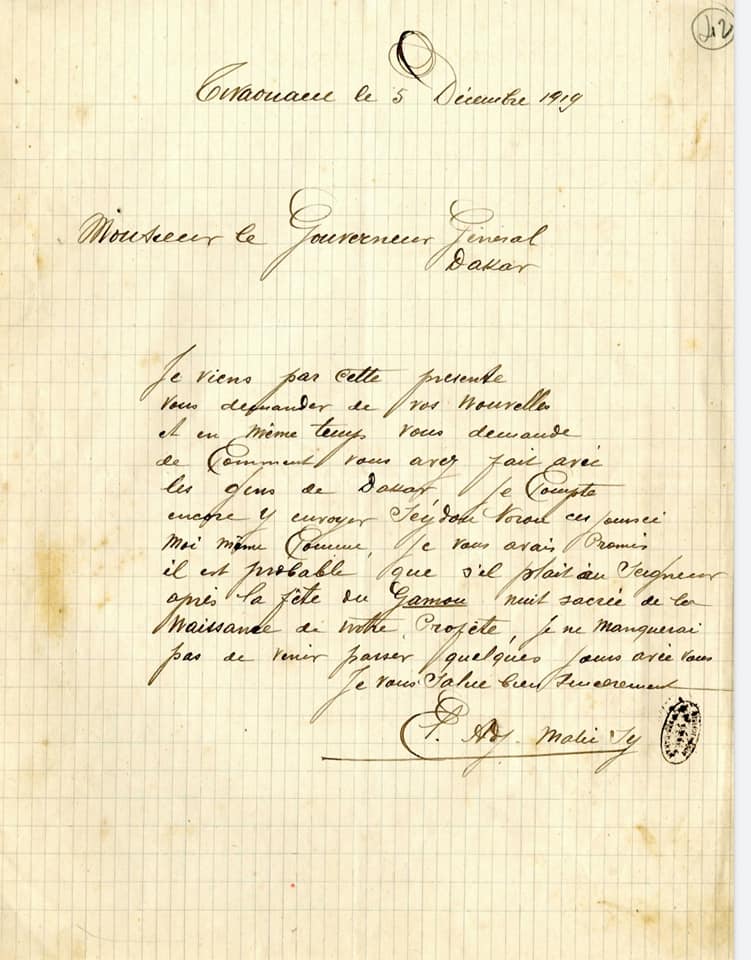 42
Tivaouane le 5 Décembre 1919
Monsieur le Gouverneur Général
Dakar
Je viens par cette presente
vous demander de vos nouvelles
et en même temps vous demande
de Comment vous avez fait avec
les gens de Dakar, Je Compte
encore y envoyer Seydou Norou ces jours ci
Moi même Comme, Je vous avais Promis
il est probable que s'il plait au Seigneur
après la fête du Gamou nuit sacrée de la
Naissance de notre Profète, Je ne manquerai
pas de venir passer quelques jours avec vous
Je vous Salue bien Sincerement
P. Adj. Malic Sy